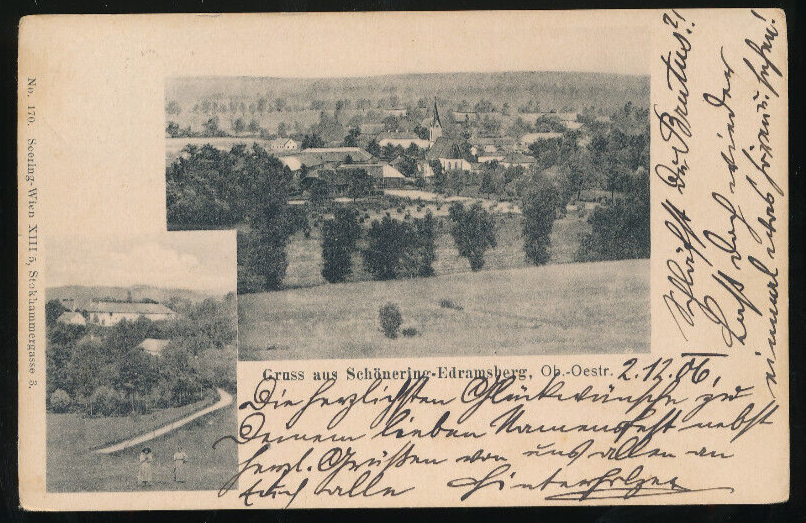 No. 170. Seering-Wien XIII/5, Stokhammergasse 3.
Gruss aus Schönering-Edramsberg, Ob.-Oestr.
2.12.06,
Die herzlichsten Glückwünsche zu
Deinem lieben Namensfest nebst
herzl. Grüßen von uns allen an
Euch alle
Schläfst du Brutus?!
Laß doch wieder
einmal etwas hören!